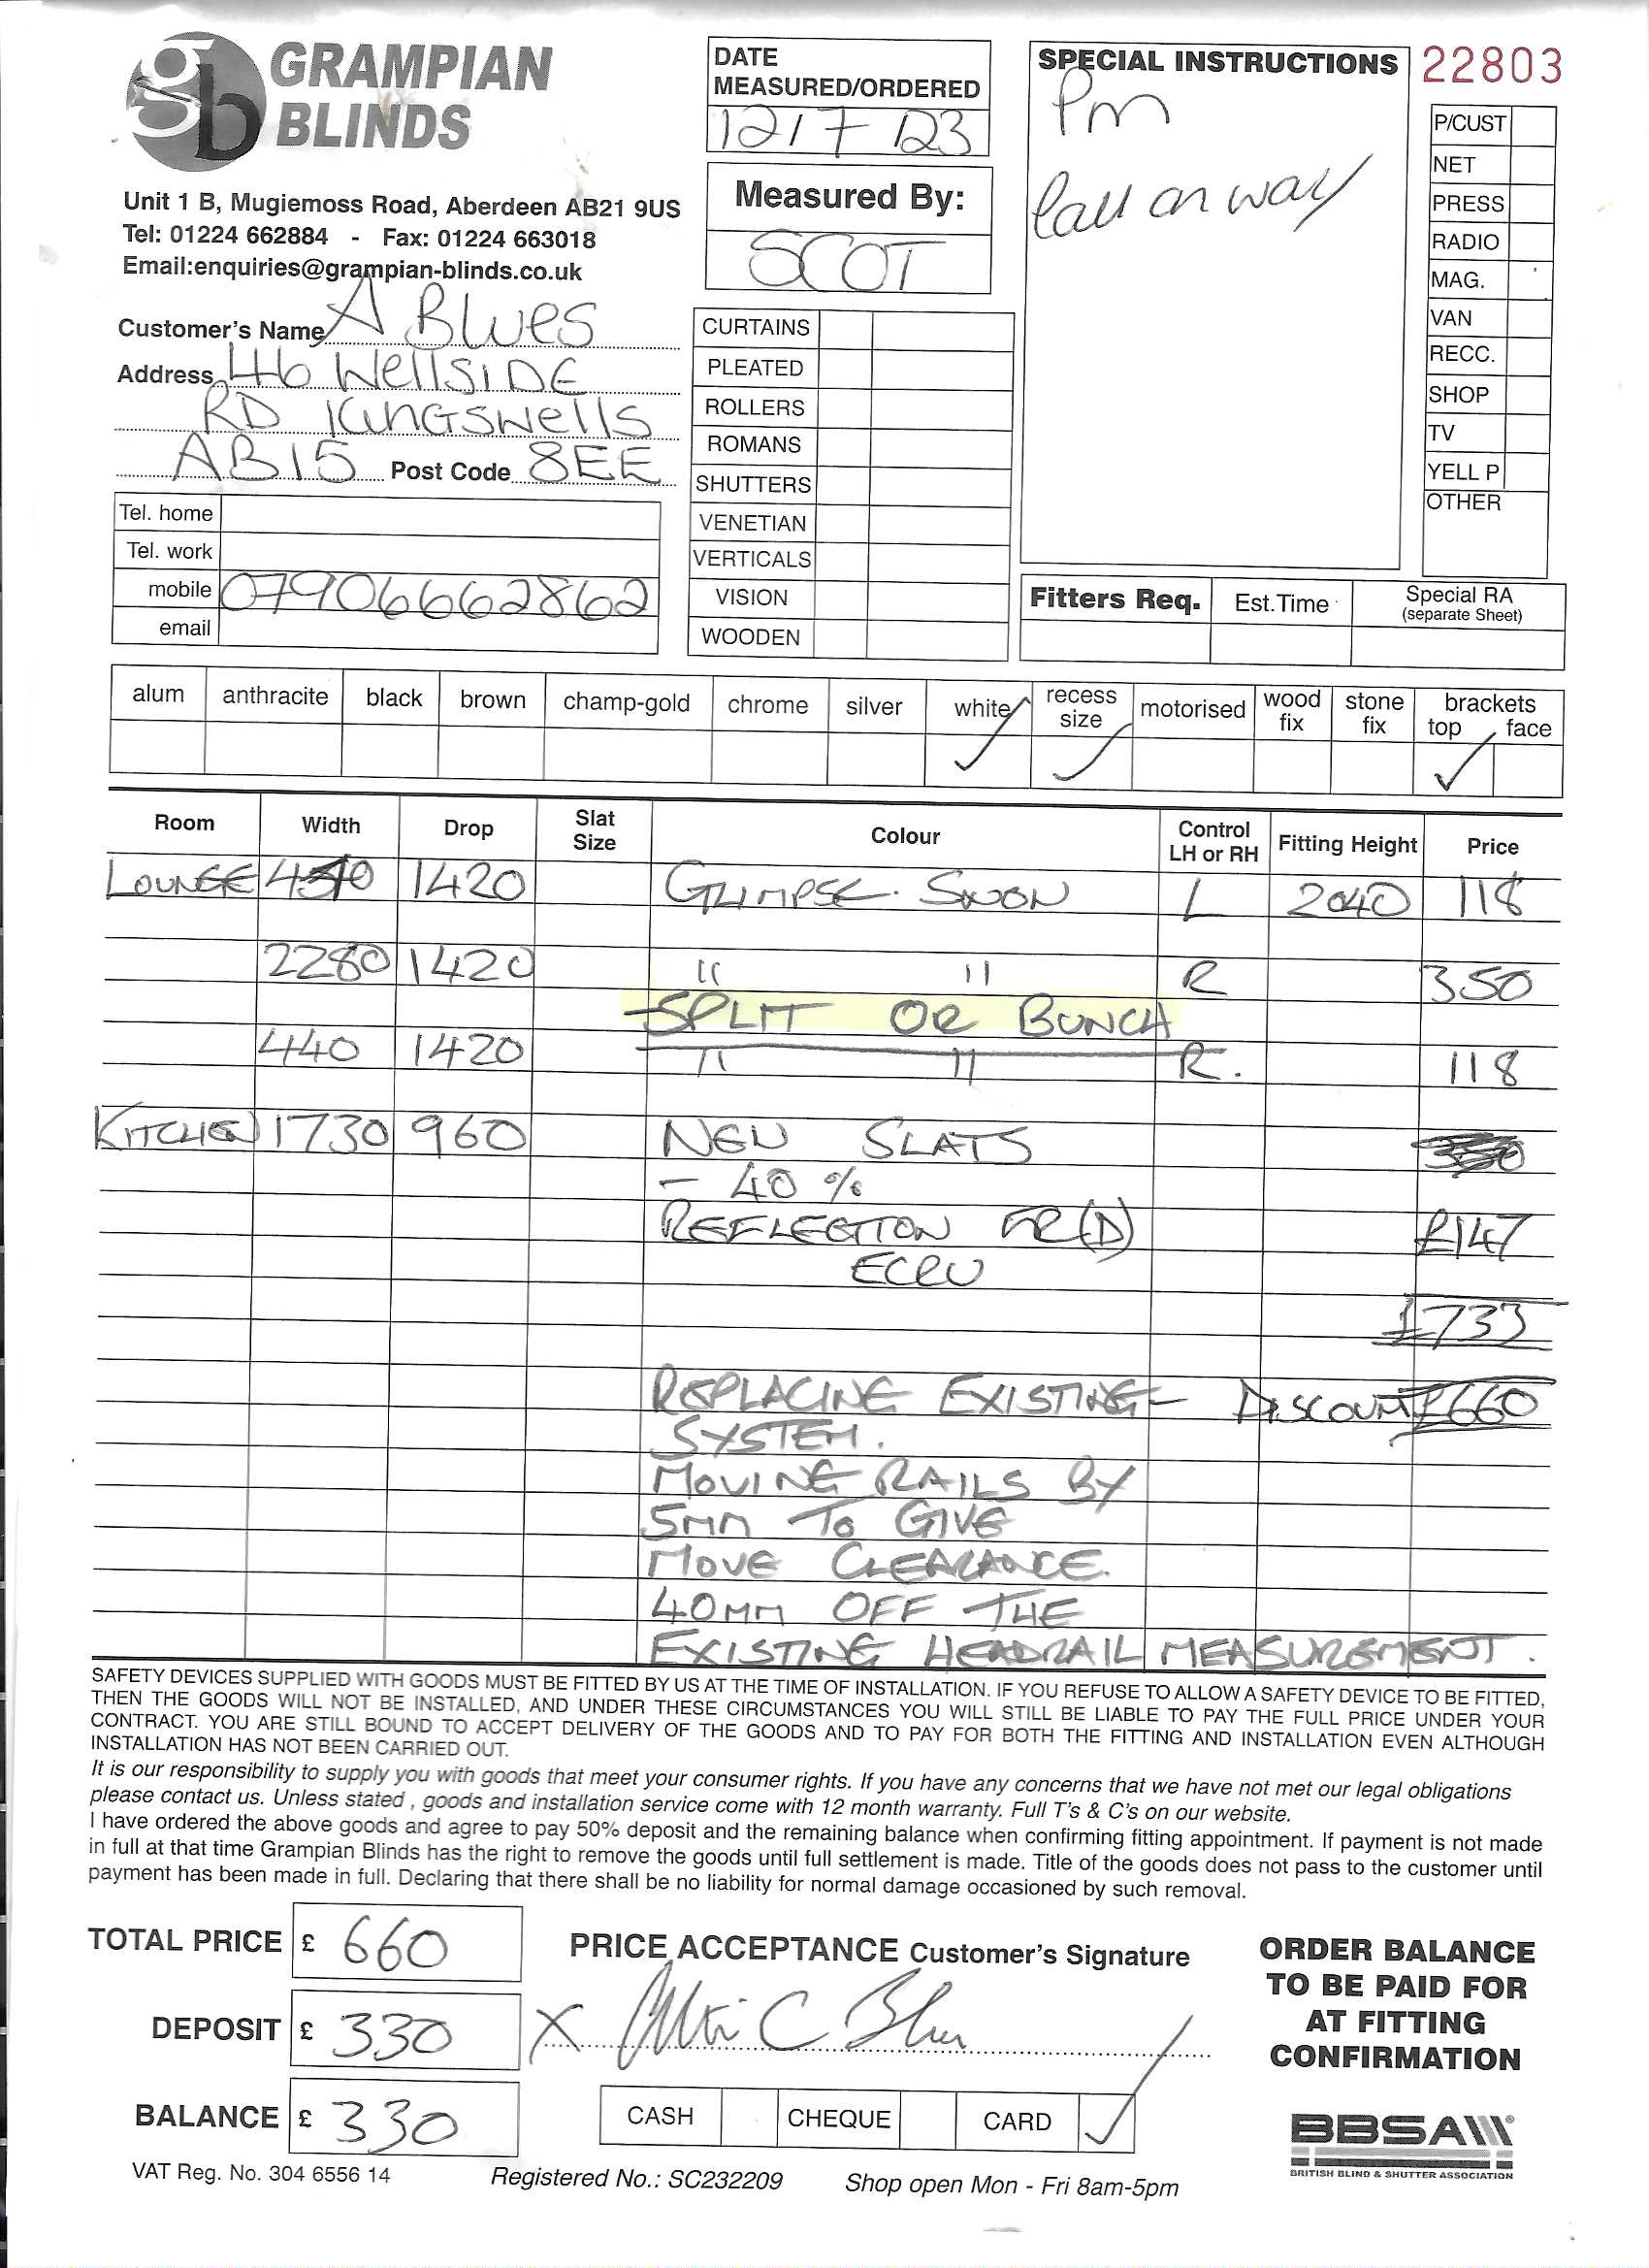 GRAMPIAN
BLINDS
Unit 1 B, Mugiemoss Road, Aberdeen AB21 9US
Tel: 01224 662884 - Fax: 01224 663018
Email:enquiries@grampian-blinds.co.uk
Customer's Name A Blues
Address 46 Wellside
RD Kingswells
AB15 Post Code 8EE
Tel. home
Tel. work
mobile 07906662862
email
DATE
MEASURED/ORDERED
12/7/23
Measured By:
SCOT
CURTAINS
PLEATED
ROLLERS
ROMANS
SHUTTERS
VENETIAN
VERTICALS
VISION
WOODEN
SPECIAL INSTRUCTIONS
Pm
Call on way
22803
P/CUST
NET
PRESS
RADIO
MAG.
VAN
RECC.
SHOP
TV
YELL P
OTHER
Fitters Req. Est.Time Special RA
(separate Sheet)
alum anthracite black brown champ-gold chrome silver white recess size motorised wood fix stone fix brackets top face
✓ ✓ ✓
Room Width Drop Slat Size Colour Control LH or RH Fitting Height Price
LOUNGE 1420 GLIMPSE SWON L 2040 118
2280 1420 " " R 350
SPLIT OR BUNCH
440 1420 " " R. 118
KITCHEN 1730 960 NEW SLATS
- 40 %
REFLECTION FR(D) £147
ECRU
£733
REPLACING EXISTING DISCOUNT £660
SYSTEM.
MOVING RAILS BY
5mm TO GIVE
MOVE CLEARANCE.
40mm OFF THE
EXISTING HEADRAIL MEASUREMENT.
SAFETY DEVICES SUPPLIED WITH GOODS MUST BE FITTED BY US AT THE TIME OF INSTALLATION. IF YOU REFUSE TO ALLOW A SAFETY DEVICE TO BE FITTED,
THEN THE GOODS WILL NOT BE INSTALLED, AND UNDER THESE CIRCUMSTANCES YOU WILL STILL BE LIABLE TO PAY THE FULL PRICE UNDER YOUR
CONTRACT. YOU ARE STILL BOUND TO ACCEPT DELIVERY OF THE GOODS AND TO PAY FOR BOTH THE FITTING AND INSTALLATION EVEN ALTHOUGH
INSTALLATION HAS NOT BEEN CARRIED OUT.
It is our responsibility to supply you with goods that meet your consumer rights. If you have any concerns that we have not met our legal obligations
please contact us. Unless stated , goods and installation service come with 12 month warranty. Full T's & C's on our website.
I have ordered the above goods and agree to pay 50% deposit and the remaining balance when confirming fitting appointment. If payment is not made
in full at that time Grampian Blinds has the right to remove the goods until full settlement is made. Title of the goods does not pass to the customer until
payment has been made in full. Declaring that there shall be no liability for normal damage occasioned by such removal.
TOTAL PRICE £ 660
DEPOSIT £ 330
BALANCE £ 330
PRICE ACCEPTANCE Customer's Signature
X
CASH CHEQUE CARD ✓
ORDER BALANCE
TO BE PAID FOR
AT FITTING
CONFIRMATION
BBSA
BRITISH BLIND & SHUTTER ASSOCIATION
VAT Reg. No. 304 6556 14 Registered No.: SC232209 Shop open Mon - Fri 8am-5pm